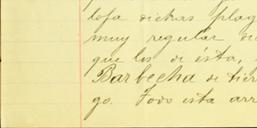 lofa dichas plag
muy regular
que los de ésta,
Barbecha de tier
go. Todo esta arr